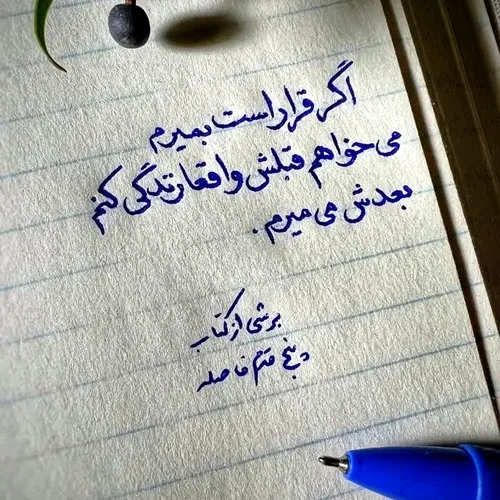 اگر قرار است بمیرم
می خواهم قبلش واقعا زندگی کنم
بعدش می میرم.
برشی از کتاب
پنج قدم فاصله